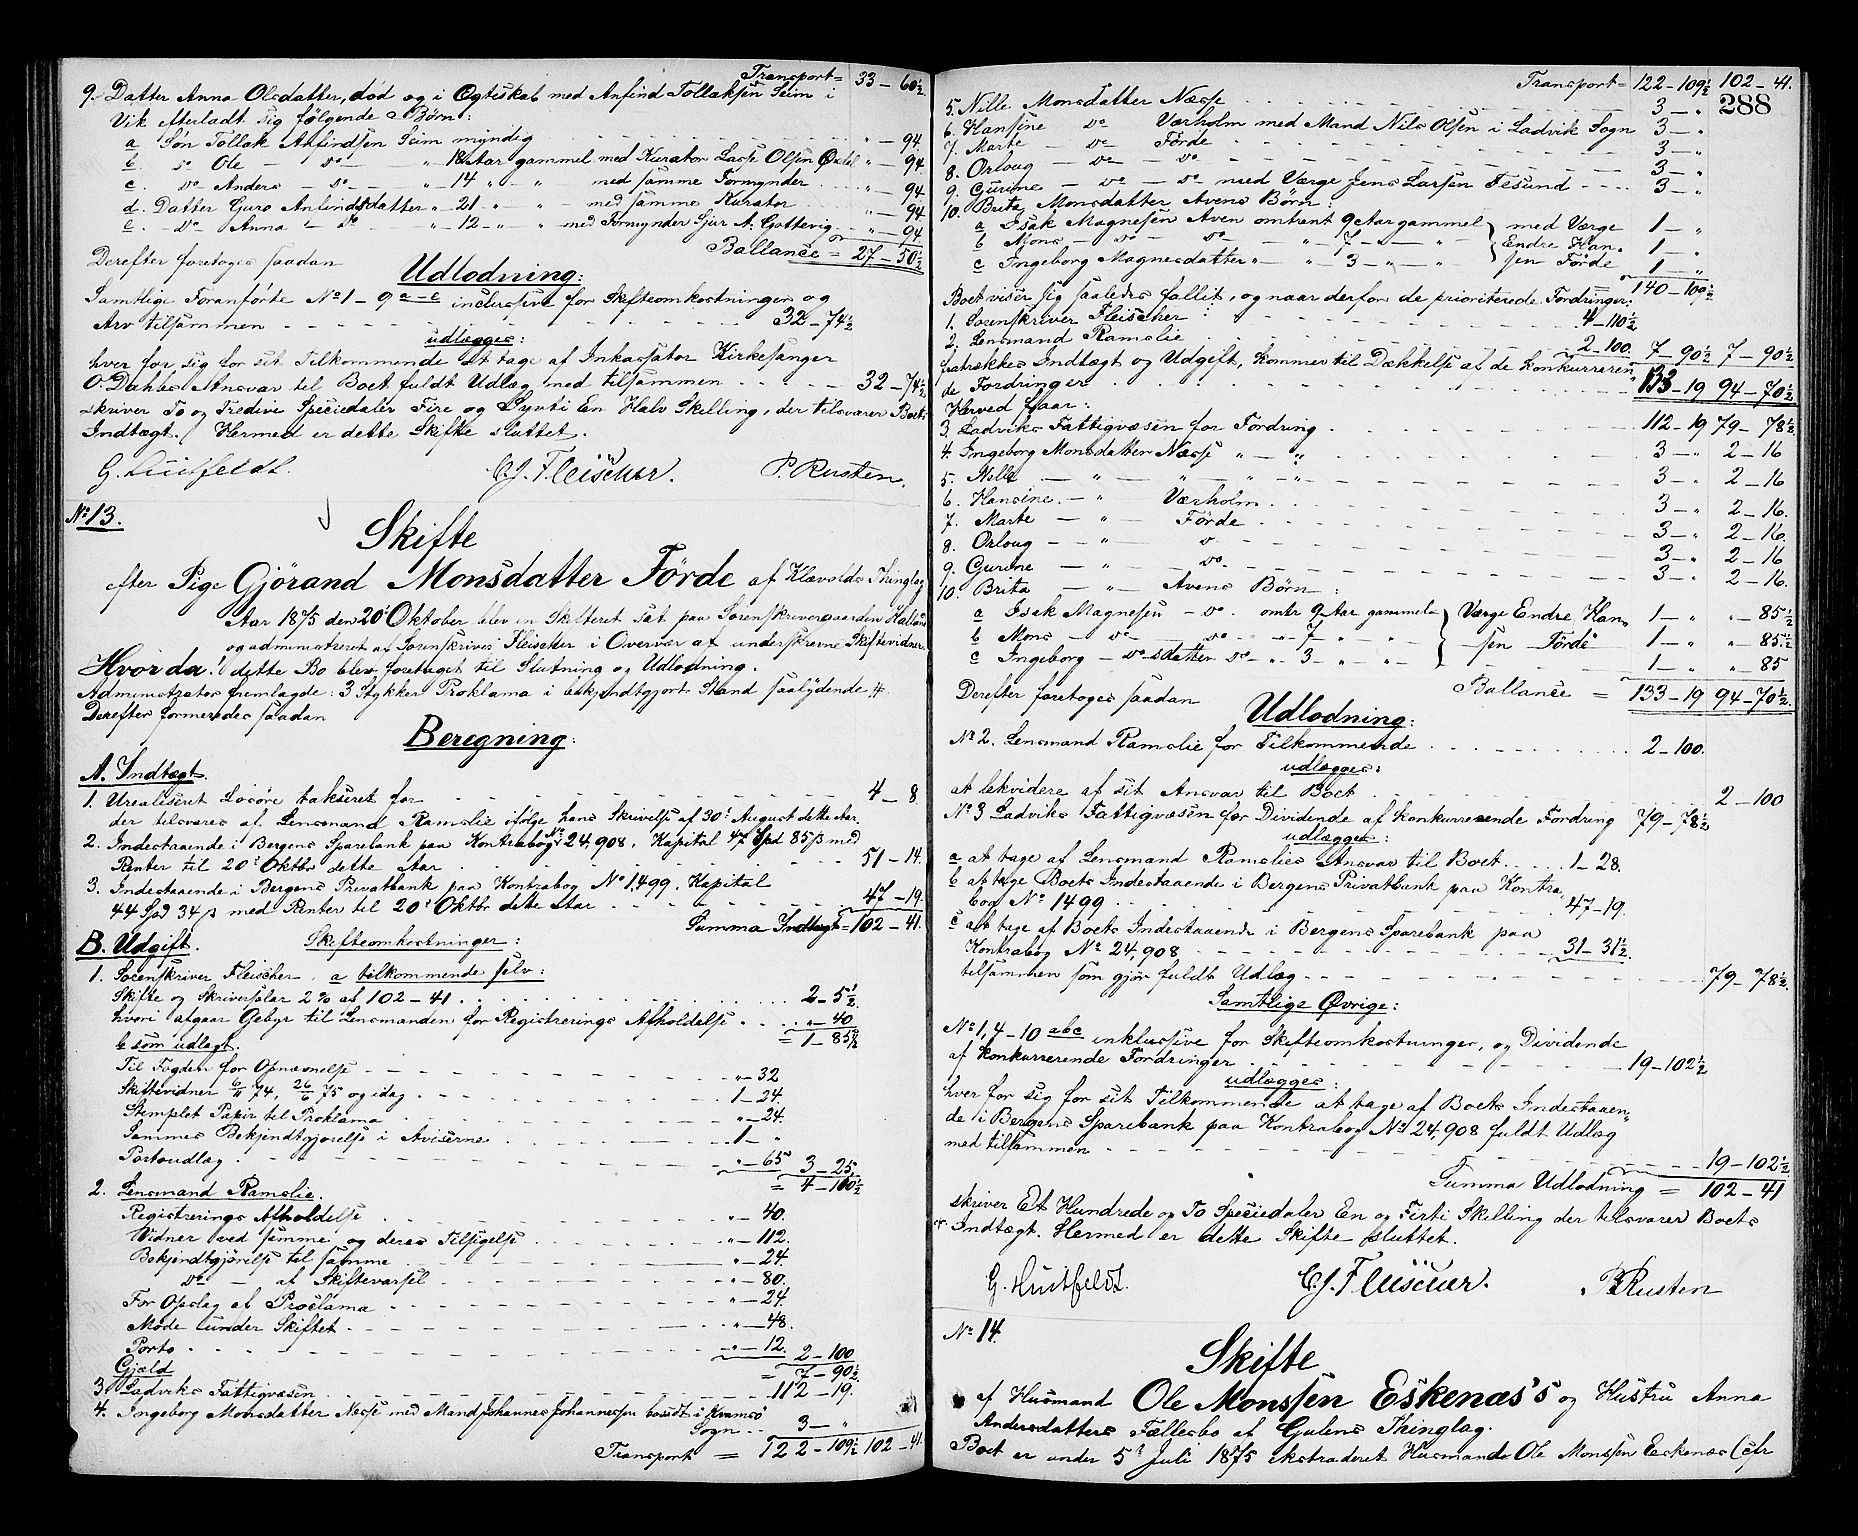 Transport = 33 - 60½
9. Datter Anna Olsdatter, død og i Egteskab med Anfind Tollaksen Seim i
Vik efterladt sig følgende Børn:
a Søn Tollak Anfindsen Seim myndig " - 94
b. do Ole - do - " 18 Aar gammel med Kurator Lasse Olsen " - 94
c. do Anders - do - " - 14 " - " med samme Formynder " - 94
d. Datter Guro Anfindsdatter " - 21 " " - med samme Kurator " - 94
e. - do Anna - do " - 12 - " - " med Formynder Sjur A. " - 94
Ballance = 27 - 50½
Derefter foretoges saadan
Udlodning:
Samtlige Foranførte No 1 - 9 a-e inclusive for Skifteomkostninger og
Arv tilsammen 32 - 74½
udlægges:
hver for sig for sit Tilkommende at tage af Inkassator Kirkesanger
O. Dahls Ansvar til Boet fuldt Udlæg med tilsammen 32 - 74½
skriver To og Tredive Speciedaler Fire og Syvti En Halv Skilling, der tilsvarer Boets
Indtægt. / Hermed er dette Skifte sluttet.
G. Huitfeldt. C.J. Fleischer. P. Rusten.
No 13.
Skifte
efter Pige Gjörand Monsdatter Förde af Klævolds Thinglag
Aar 1875 den 20de Oktober blev en Skifteret sat paa Sorenskrivergaarden
og administreret af Sorenskriver Fleischer i Overvær af underskrevne Skiftevidner.
Hvorda: dette Bo blev foretaget til Slutning og Udlodning.
Administrator fremlagde: 3 Stykker Proklama i bekjendtgjort Stand saalydende #.
Derefter formeredes saadan
Beregning:
A. Indtægt.
1. Urealiseret Løsøre takseret for 4 - 8
der tilsvares af Lensmand Ramslie ifølge hans Skrivelse af 30te August dette Aar.
2. Indestaaende i Bergens Sparebank paa Kontrabog No 24,908. Kapital 47 Spd 85 ß med
Renter til 20de Oktbr dette Aar 51 - 14.
3. Indestaaende i Bergens Privatbank paa Kontrabog No 1499. Kapital
44 Spd 34 ß med Renter til 20de Oktbr dette Aar 47 - 19.
Summa Indtægt = 102 - 41.
B. Udgift. Skifteomkostninger:
1. Sorenskriver Fleischer. a tilkommende selv:
Skifte og Skriversalar 2% af 102 - 41 2 - 5½
hvori afgaar Gebyr til Lensmanden for Registrerings Afholdelse " - 40
= 1 - 85½
b som udlagt.
Til Fogden for Opnævnelse " - 32
Skiftevidner 6/11 74, 26/6 75 og idag 1 - 24.
Stemplet Papir til Proklama " - 24.
Sammes Bekjendtgjørelse i Aviserne 1 - "
Portoudlæg " - 65 3 - 25.
= 4 - 110½
2. Lensmand Ramslie.
Registrerings Afholdelse " - 40.
Vidner ved samme og deres Tilsigelse " - 112.
Bekjendtgjørelse til samme " - 24.
do - af Skiftevarsel " - 80.
For Opslag af Proclama " - 24.
Møde under Skiftet " - 48.
Porto " - 12. 2 - 100
= 7 - 90½
Gjæld
3 Ladviks Fattigvæsen 112 - 19.
4. Ingeborg Monsdatter Næsse med Mand Johannes Johannessen bosat i Kvamsö
Sogn 3 - "
Transport = 122 - 109½ 102 - 41.
Transport = 122 - 109½ 102 - 41.
288
5. Nille Monsdatter Næsse 3 - "
6. Hansine do Værholm med Mand Nils Olsen i Ladvik Sogn 3 - "
7. Marte - do Förde 3 - "
8. Orloug - do - do 3 - "
9. Gurine - do - do med Værge Jens Larsen 3 - "
10. Brita Monsdatter Avens Børn:
a Isak Magnesen Aven omtrent 9 Aar gammel med Værge 1 - "
b Mons - do - do - " 7 - " Endre Han- 1 - "
c Ingeborg Magnesdatter " - " 3 - " - " sen Förde 1 - "
140 - 109½
Boet viser sig saaledes fallit, og naar derfor de prioriterede Fordringer:
1. Sorenskriver Fleischer 4 - 110½
2. Lensmand Ramslie 2 - 100. 7 - 90½ 7 - 90½
fratrækkes Indtægt og Udgift, kommer til Dækkelse af de konkurreren-
de Fordringer 133 - 19 94 - 70½
Herved faar:
3. Ladviks Fattigvæsen for Fordring 112 - 19 79 - 78½
4. Ingeborg Monsdatter Næsse " - " 3 - " 2 - 16
5. Nille - " - " " - " 3 - " 2 - 16
6. Hansine. - " Værholm 3 - " 2 - 16.
7. Marte - " - Förde 3 - " 2 - 16.
8. Orloug - " - do 3 - " 2 - 16
9. Gurine - " do. 3 - " 2 - 16.
10. Brita - " Avens Børn:
a Isak Magnesen - do. omtr 9 Aar gammel Værge Endre Han- 1 - " " - 85½
b Mons - do - do - 7 - " - sen Förde 1 - " " - 85½
c Ingeborg - do - sdatter do - " 3 - " " 1 - " " - 85
Ballance = 133 - 19 94 - 70½
Derefter foretoges saadan
Udlodning:
No 2. Lensmand Ramslie for Tilkommende 2 - 100.
udlægges:
at lekvidere af sit Ansvar til Boet 2 - 100
No 3 Ladviks Fattigvæsen for Dividende af konkurrerende Fordring 79 - 78½
udlægges:
a at tage af Lensmand Ramslies Ansvar til Boet 1 - 28.
b at tage Boets Indestaaende i Bergens Privatbank paa Kontra-
bog No 1499 47 - 19.
c at tage af Boets Indestaaende i Bergens Sparebank paa
Kontrabog No 24,908 31 - 31½
tilsammen som gjør fuldt Udlæg 79 - 78½
Samtlige Øvrige:
No 1, 4 - 10 abc inklussive for Skifteomkostninger, og Dividende
af konkurrerende Fordringer 19 - 102½
udlægges:
hver for sig for sit Tilkommende at tage af Boets Indestaaen-
de i Bergens Sparebank paa Kontrabog No 24,908 fuldt Udlæg
med tilsammen 19 - 102½
Summa Udlodning = 102 - 41
skriver Et Hundrede og To Speciedaler En og Firti Skilling der tilsvarer Boets
Indtægt. Hermed er dette Skifte sluttet.
G. Huitfeldt. C.J. Fleischer. P. Rusten
No 14.
Skifte
af Husmand Ole Monssen Eskenæs's og Hustru Anna
Andersdatters Fællesbo af Gulens Thinglag.
Boet er under 5te Juli 1875 ekstraderet Husmand Ole Monssen Eskenæs (cfr